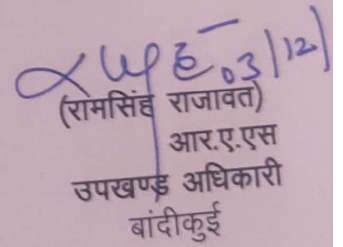 03/12/
(रामसिंह राजावत)
आर.ए.एस
उपखण्ड अधिकारी
बांदीकुई